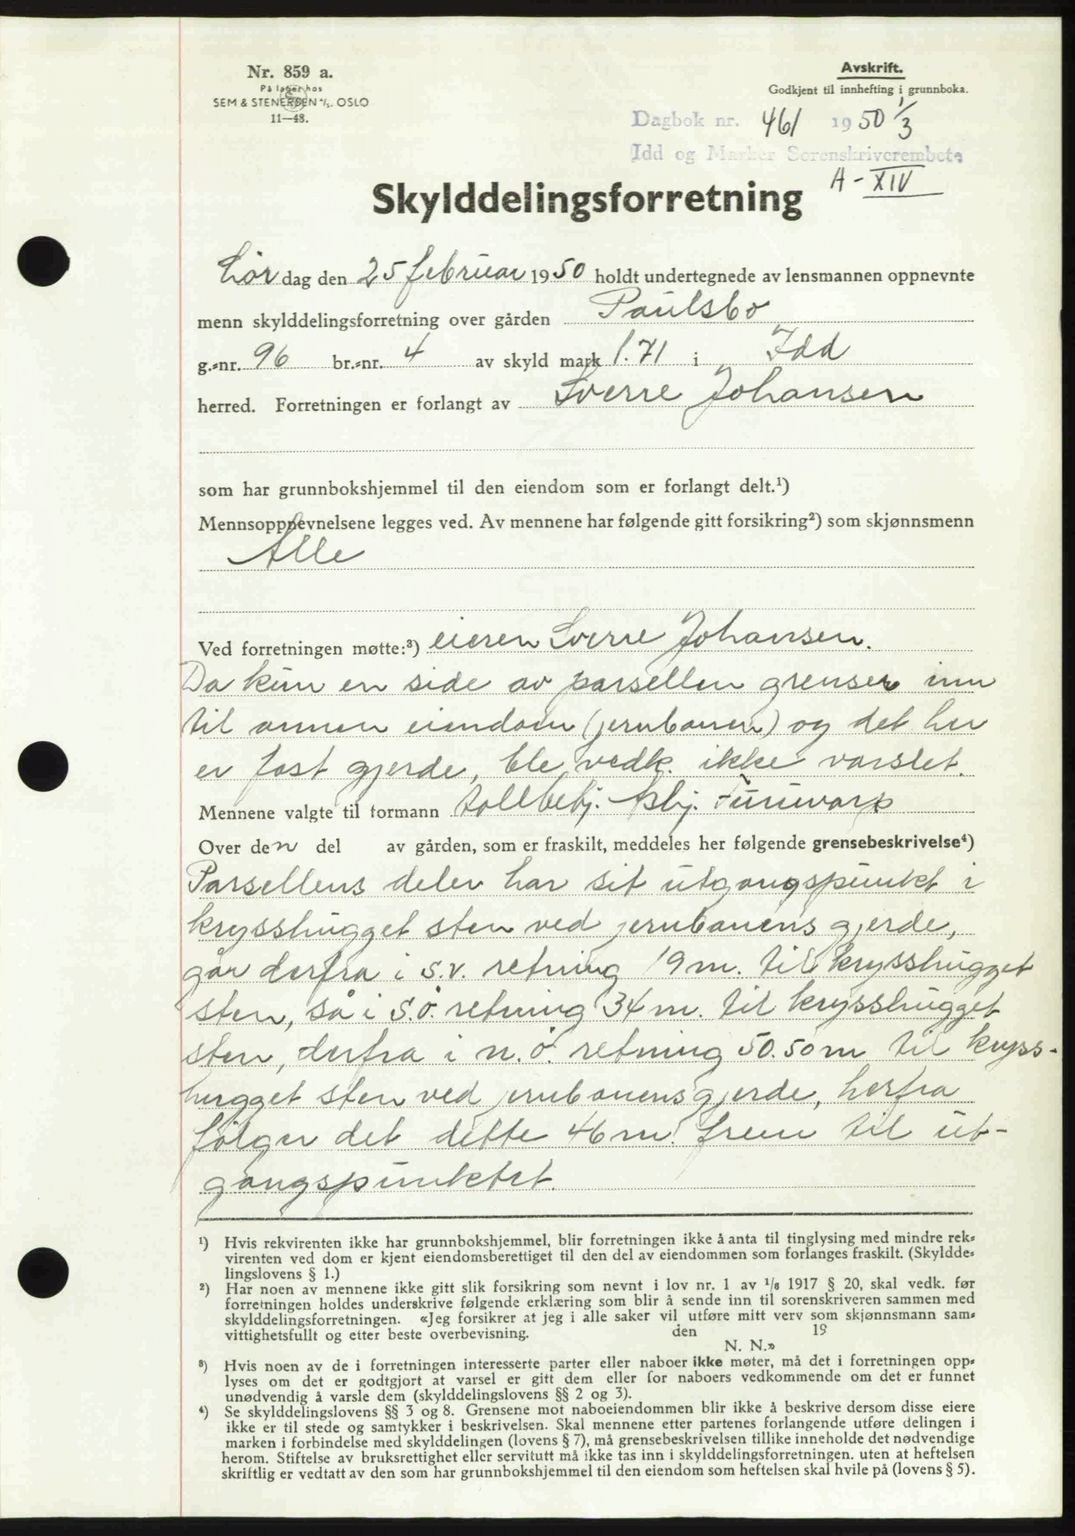 Nr. 859 a.
På lager hos
SEM & STENERSEN A/S. OSLO
11—48.
Avskrift.
Godkjent til innhefting i grunnboka.
Dagbok nr. 461 1950 1/3
Idd og Marker Sorenskriverembete
A - XIV
Skylddelingsforretning
Lørdag den 25 februar 1950 holdt undertegnede av lensmannen oppnevnte
menn skylddelingsforretning over gården Paulsbo
g.-nr. 96 br.-nr. 4 av skyld mark 1.71 i Idd
herred. Forretningen er forlangt av Sverre Johansen
som har grunnbokshjemmel til den eiendom som er forlangt delt.¹)
Mennsoppnevnelsene legges ved. Av mennene har følgende gitt forsikring²) som skjønnsmenn
Alle
Ved forretningen møtte:³) eieren Sverre Johansen.
Da kun en side av parsellen grenser inn
til annen eiendom (jernbanen) og det her
er fast gjerde, ble vedk. ikke varslet.
Mennene valgte til formann tollbetj. Asbj. Furuvarp
Over den del av gården, som er fraskilt, meddeles her følgende grensebeskrivelse⁴)
Parsellens deler har sit utgangspunkt i
krysshugget sten ved jernbanens gjerde,
går derfra i s.v. retning 19 m. til krysshugget
sten, så i s.ø. retning 34 m. til krysshugget
sten, derfra i n.ø. retning 50.50 m til kryss-
hugget sten ved jernbanens gjerde, herfra
følger det dette 46 m. frem til ut-
gangspunktet.
¹) Hvis rekvirenten ikke har grunnbokshjemmel, blir forretningen ikke å anta til tinglysing med mindre rek-
virenten ved dom er kjent eiendomsberettiget til den del av eiendommen som forlanges fraskilt. (Skyldde-
lingslovens § 1.)
²) Har noen av mennene ikke gitt slik forsikring som nevnt i lov nr. 1 av 1/6 1917 § 20, skal vedk. før
forretningen holdes underskrive følgende erklæring som blir å sende inn til sorenskriveren sammen med
skylddelingsforretningen. «Jeg forsikrer at jeg i alle saker vil utføre mitt verv som skjønnsmann sam-
vittighetsfullt og etter beste overbevisning. den 19
N. N.»
³) Hvis noen av de i forretningen interesserte parter eller naboer ikke møter, må det i forretningen opp-
lyses om det er godtgjort at varsel er gitt dem eller for naboers vedkommende om det er funnet
unødvendig å varsle dem (skylddelingslovens §§ 2 og 3).
⁴) Se skylddelingslovens §§ 3 og 8. Grensene mot naboeiendommen blir ikke å beskrive dersom disse eiere
ikke er til stede og samtykker i beskrivelsen. Skal mennene etter partenes forlangende utføre delingen i
marken i forbindelse med skylddelingen (lovens § 7), må grensebeskrivelsen tillike inneholde det nødvendige
herom. Stiftelse av bruksrettighet eller servitutt må ikke tas inn i skylddelingsforretningen. uten at heftelsen
skriftlig er vedtatt av den som har grunnbokshjemmel til den eiendom som heftelsen skal hvile på (lovens § 5).